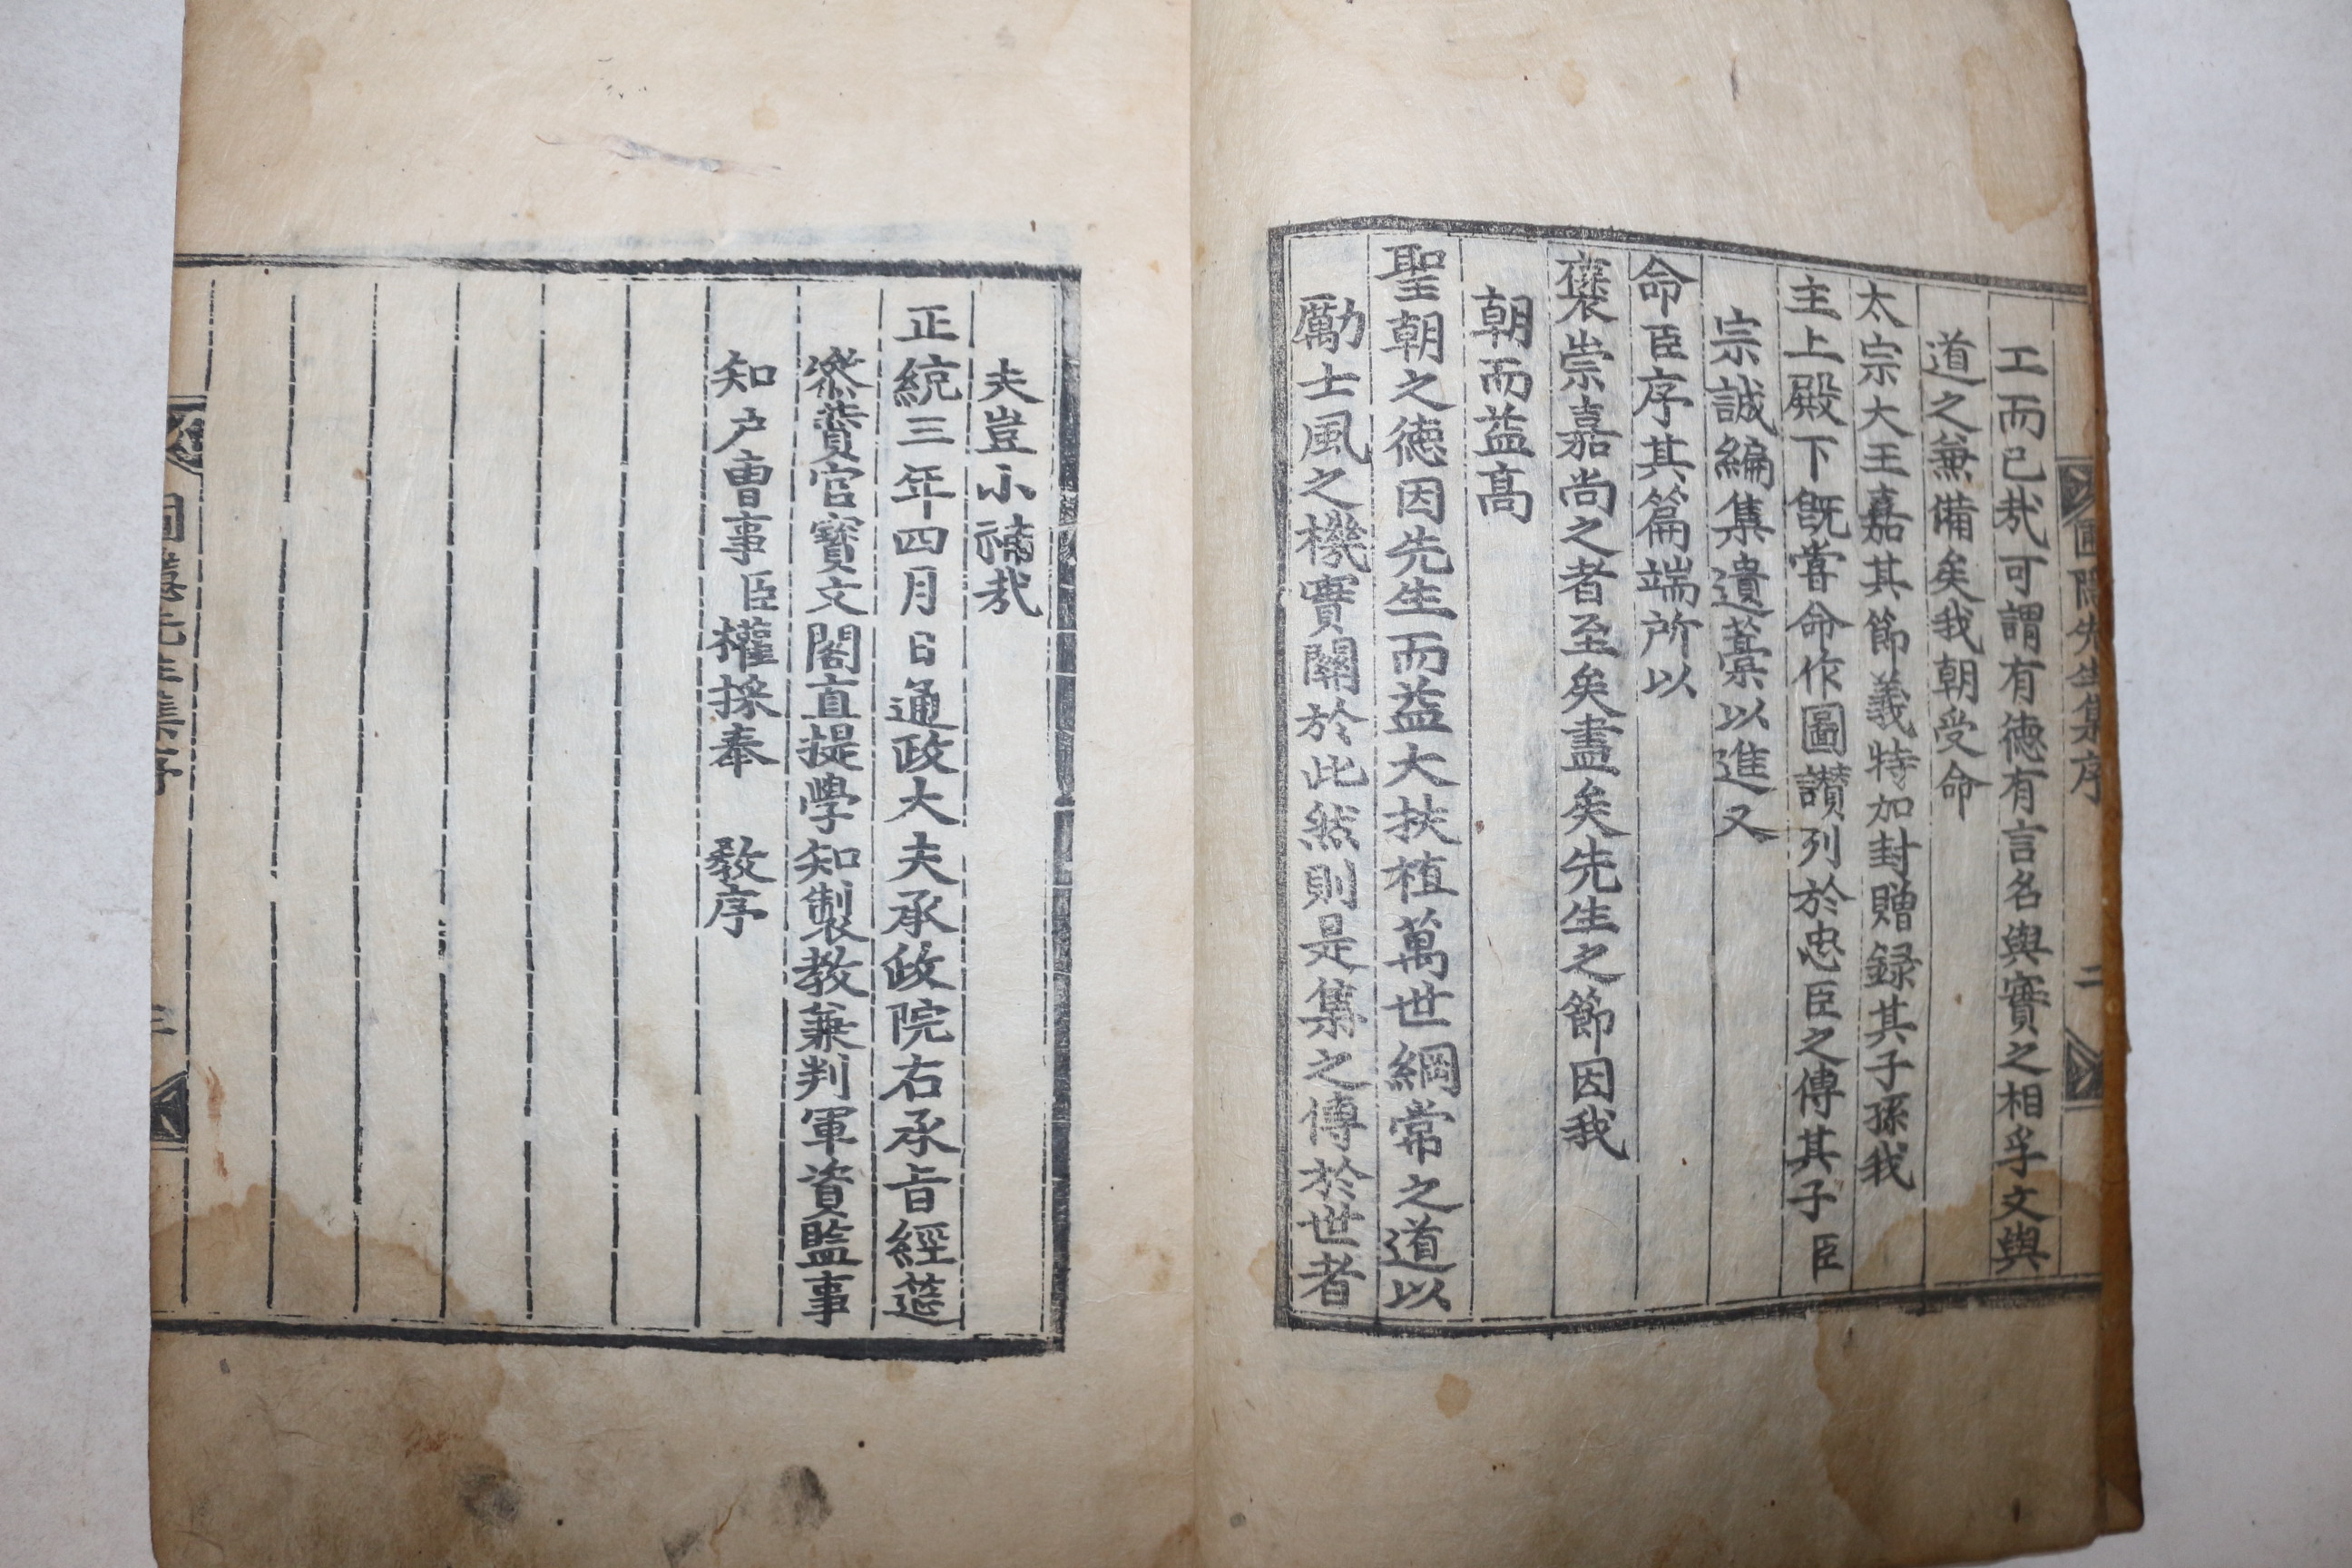 圃隱先生集序 二
工而已㢤可謂有德有言名與實之相孚文與
道之兼備矣我朝受命
太宗大王嘉其節義特加封贈録其子孫我
主上殿下旣嘗命作圖讃列於忠臣之傳其子臣
宗誠編集遺藁以進又
命臣序其篇端所以
襃崇嘉尚之者至矣盡矣先生之節因我
朝而益髙
聖朝之德因先生而益大扶植萬世綱常之道以
勵士風之機實關於此然則是集之傳於世者
夫豈小補㢤
正統三年四月日通政大夫承政院右承旨經筵
叅賛官寶文閣直提學知製教兼判軍資監事
知户曹事臣權採奉 敎序
圃隱先生集序 三